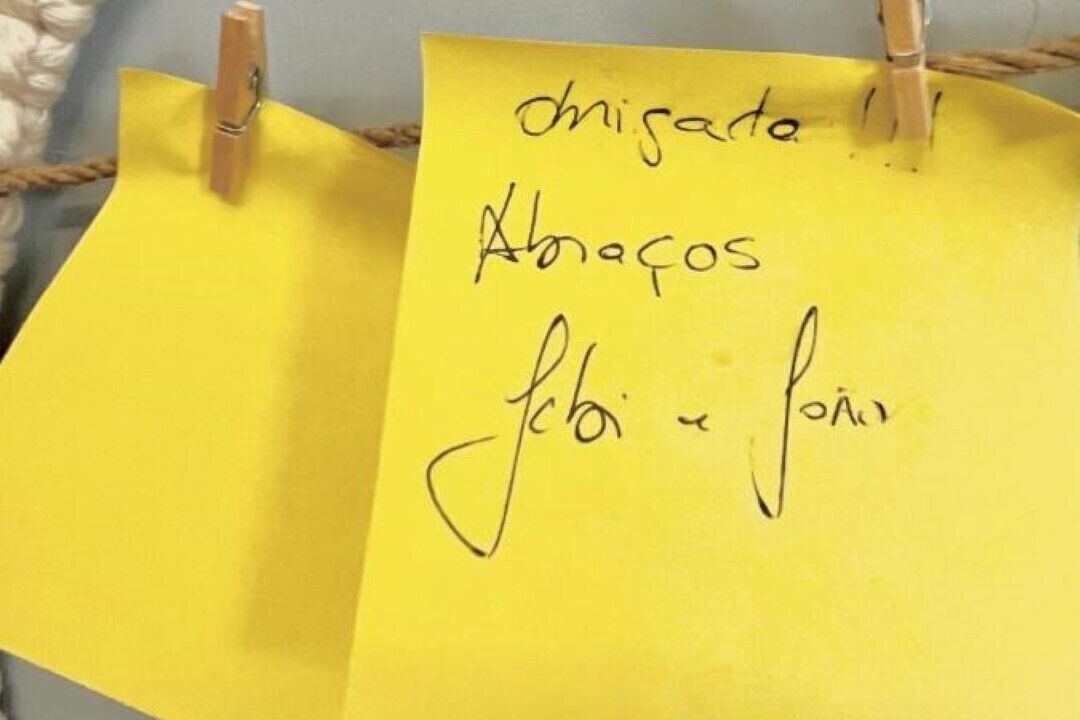 obrigada !!!
Abraços
Gabi e João